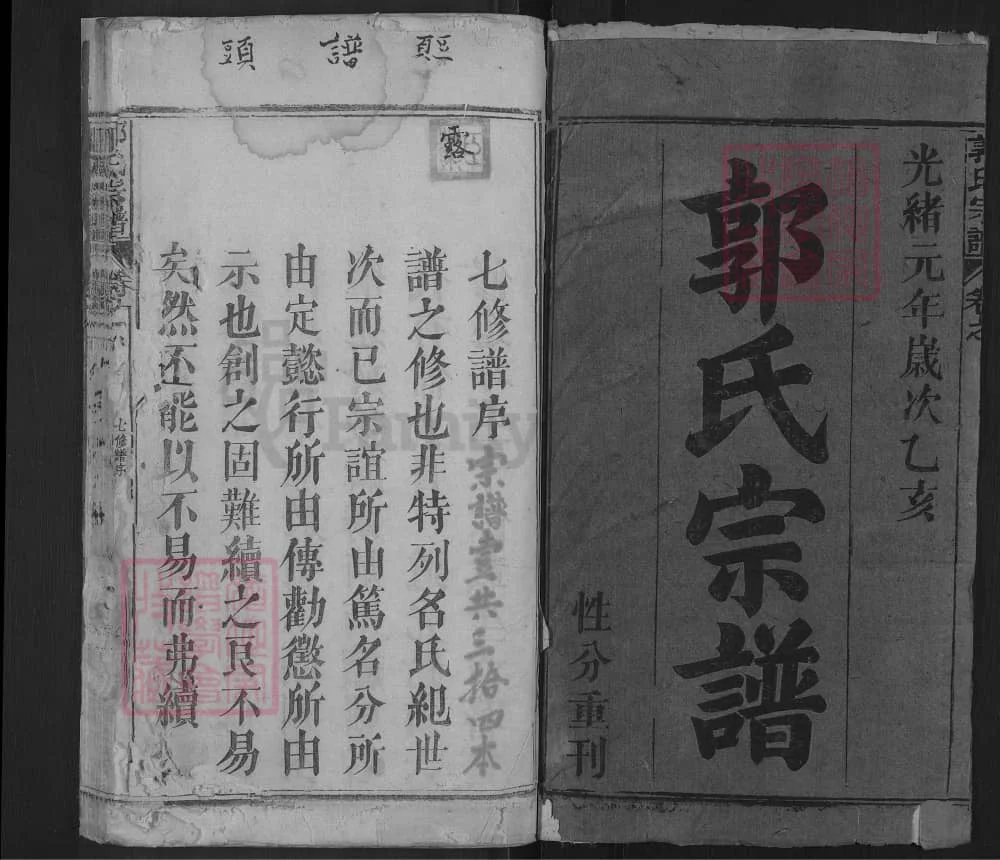 光緒元年歲次乙亥
郭氏宗譜
性分重刊
郭氏宗譜
譜頭
露
七修譜序
宗譜壹共三拾四本
譜之修也非特列名氏紀世
次而已宗誼所由篤名分所
由定懿行所由傳勸懲所由
示也創之固難續之良不易
矣然不能以不易而弗續
郭氏宗譜
七修譜序